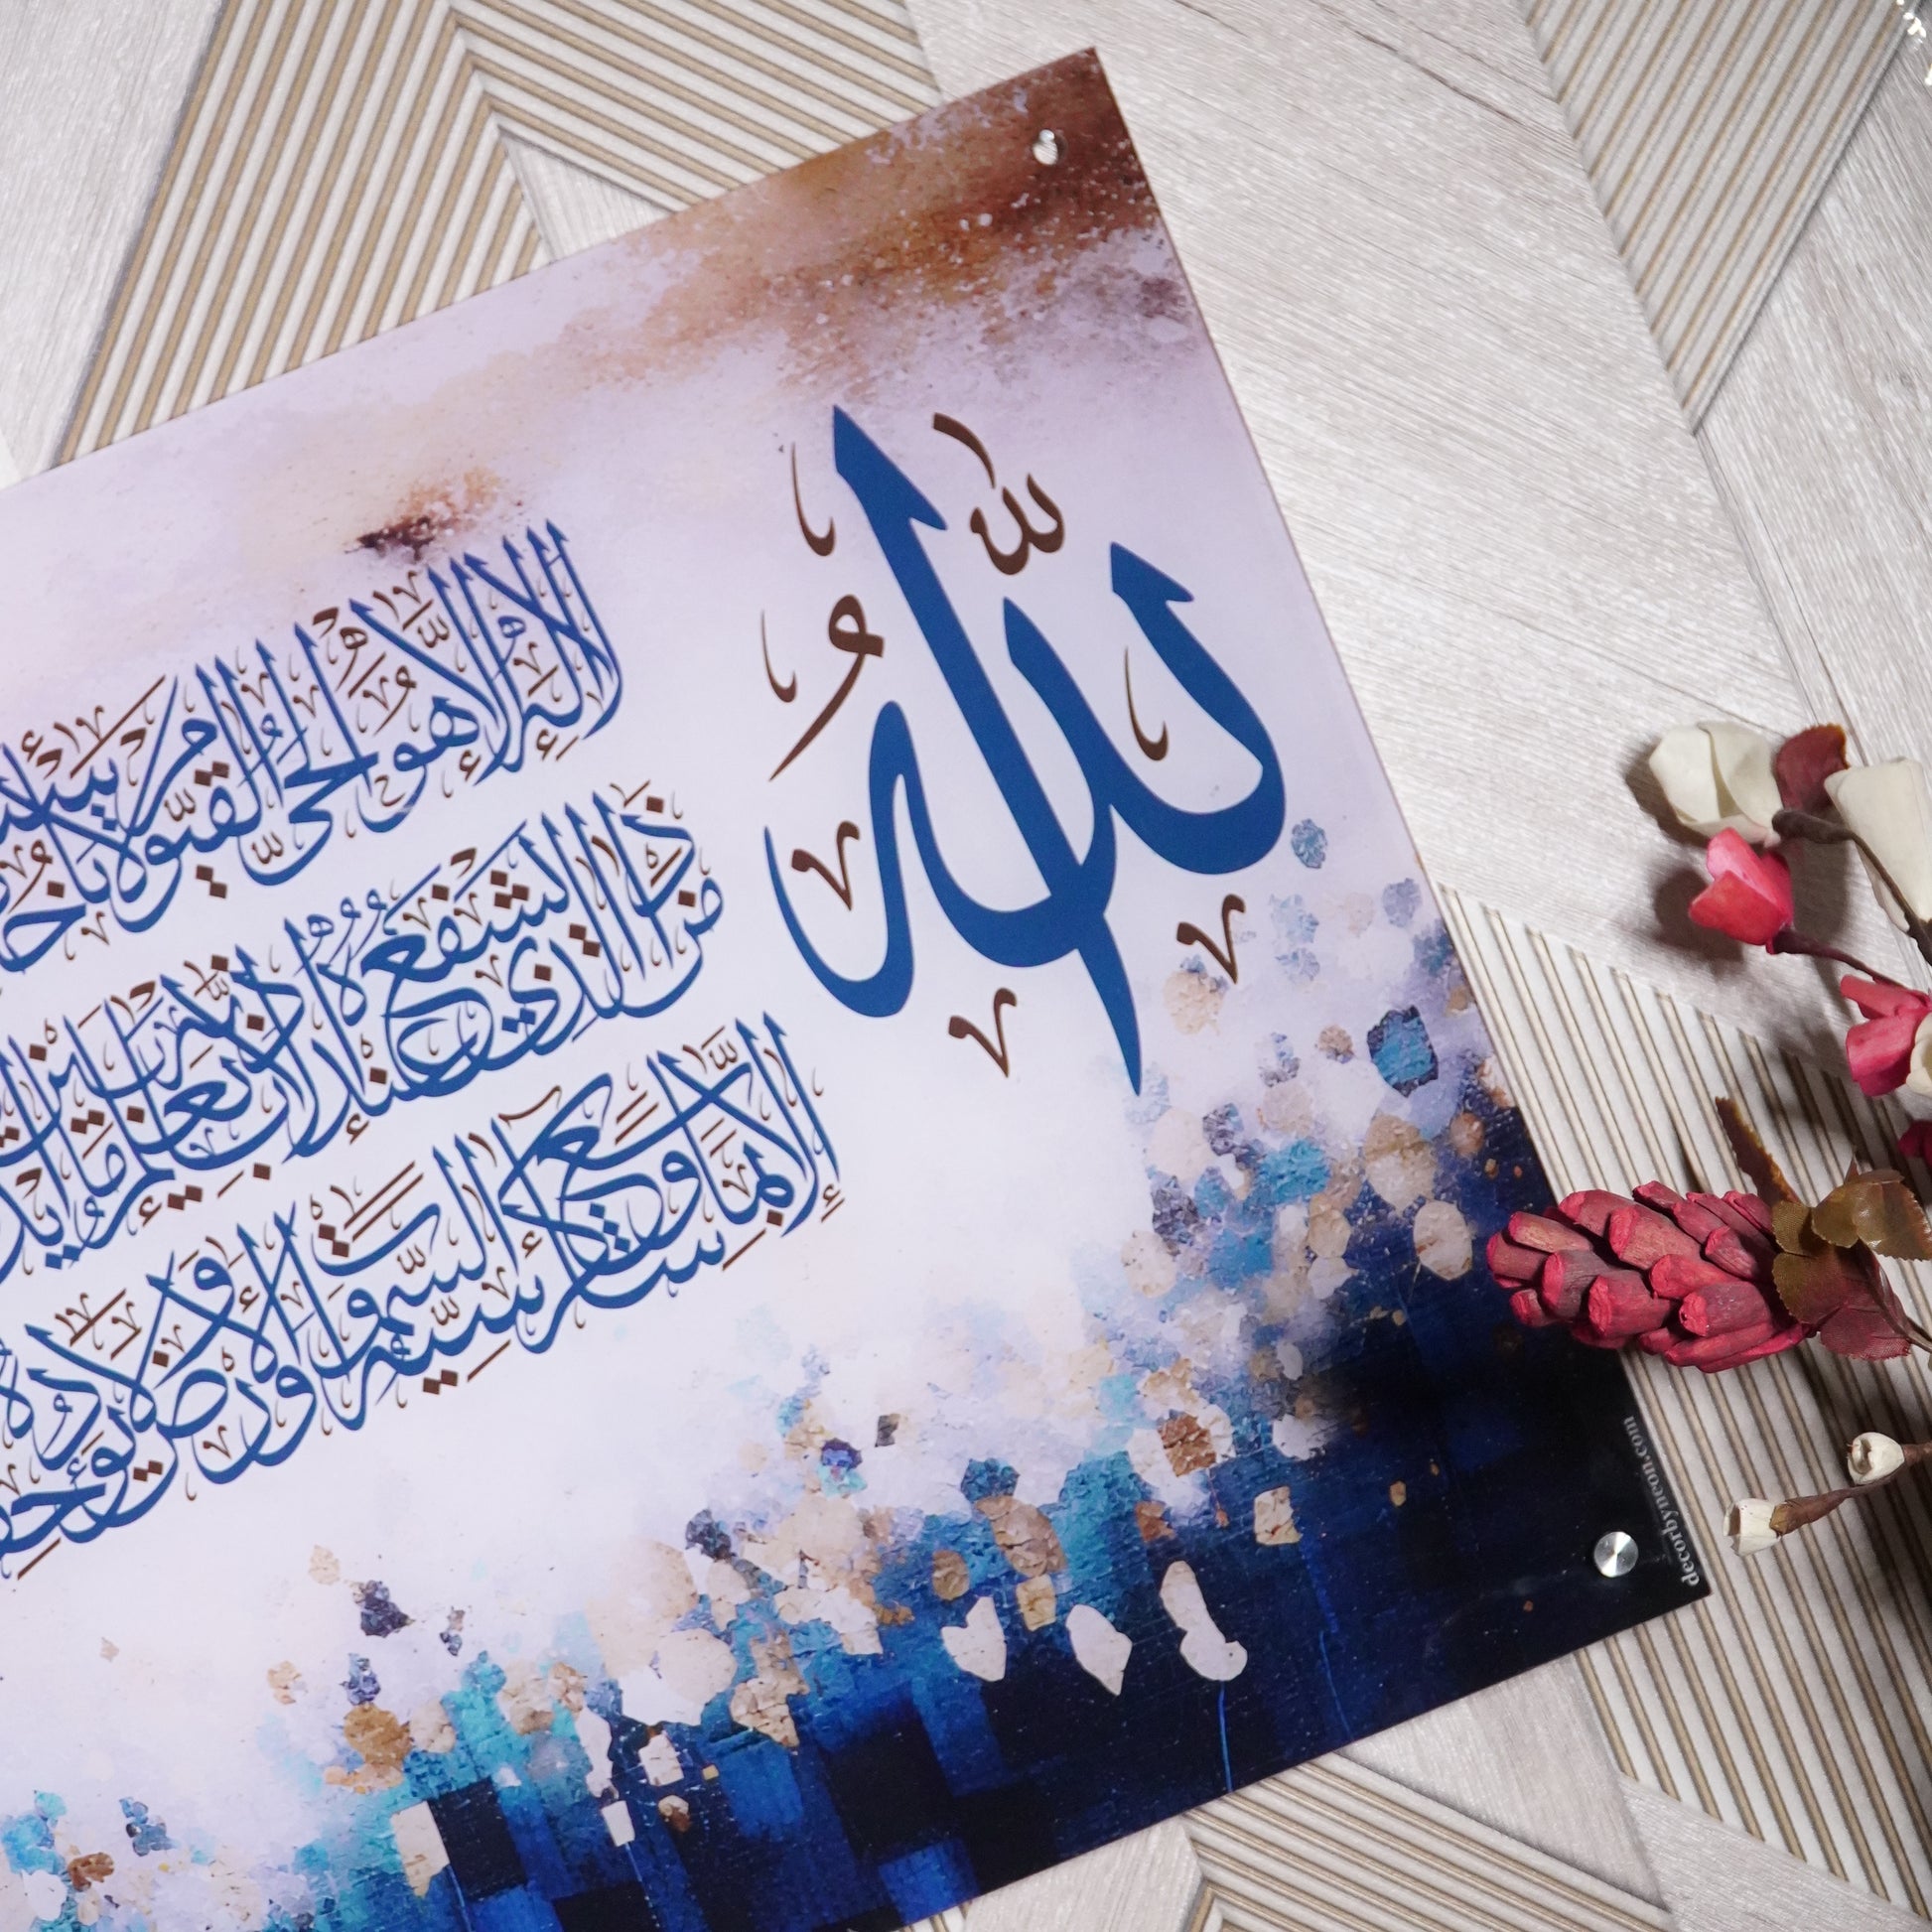 الله
لَا إِلَٰهَ إِلَّا هُوَ الْحَيُّ الْقَيُّومُ لَا تَأْخُذُهُ
مَنْ ذَا الَّذِي يَشْفَعُ عِنْدَهُ إِلَّا بِإِذْنِهِ يَعْلَمُ مَا بَيْنَ
إِلَّا بِمَا شَاءَ وَسِعَ كُرْسِيُّهُ السَّمٰوَاتِ وَالْأَرْضَ وَلَا يَئُودُهُ
decorbyneon.com